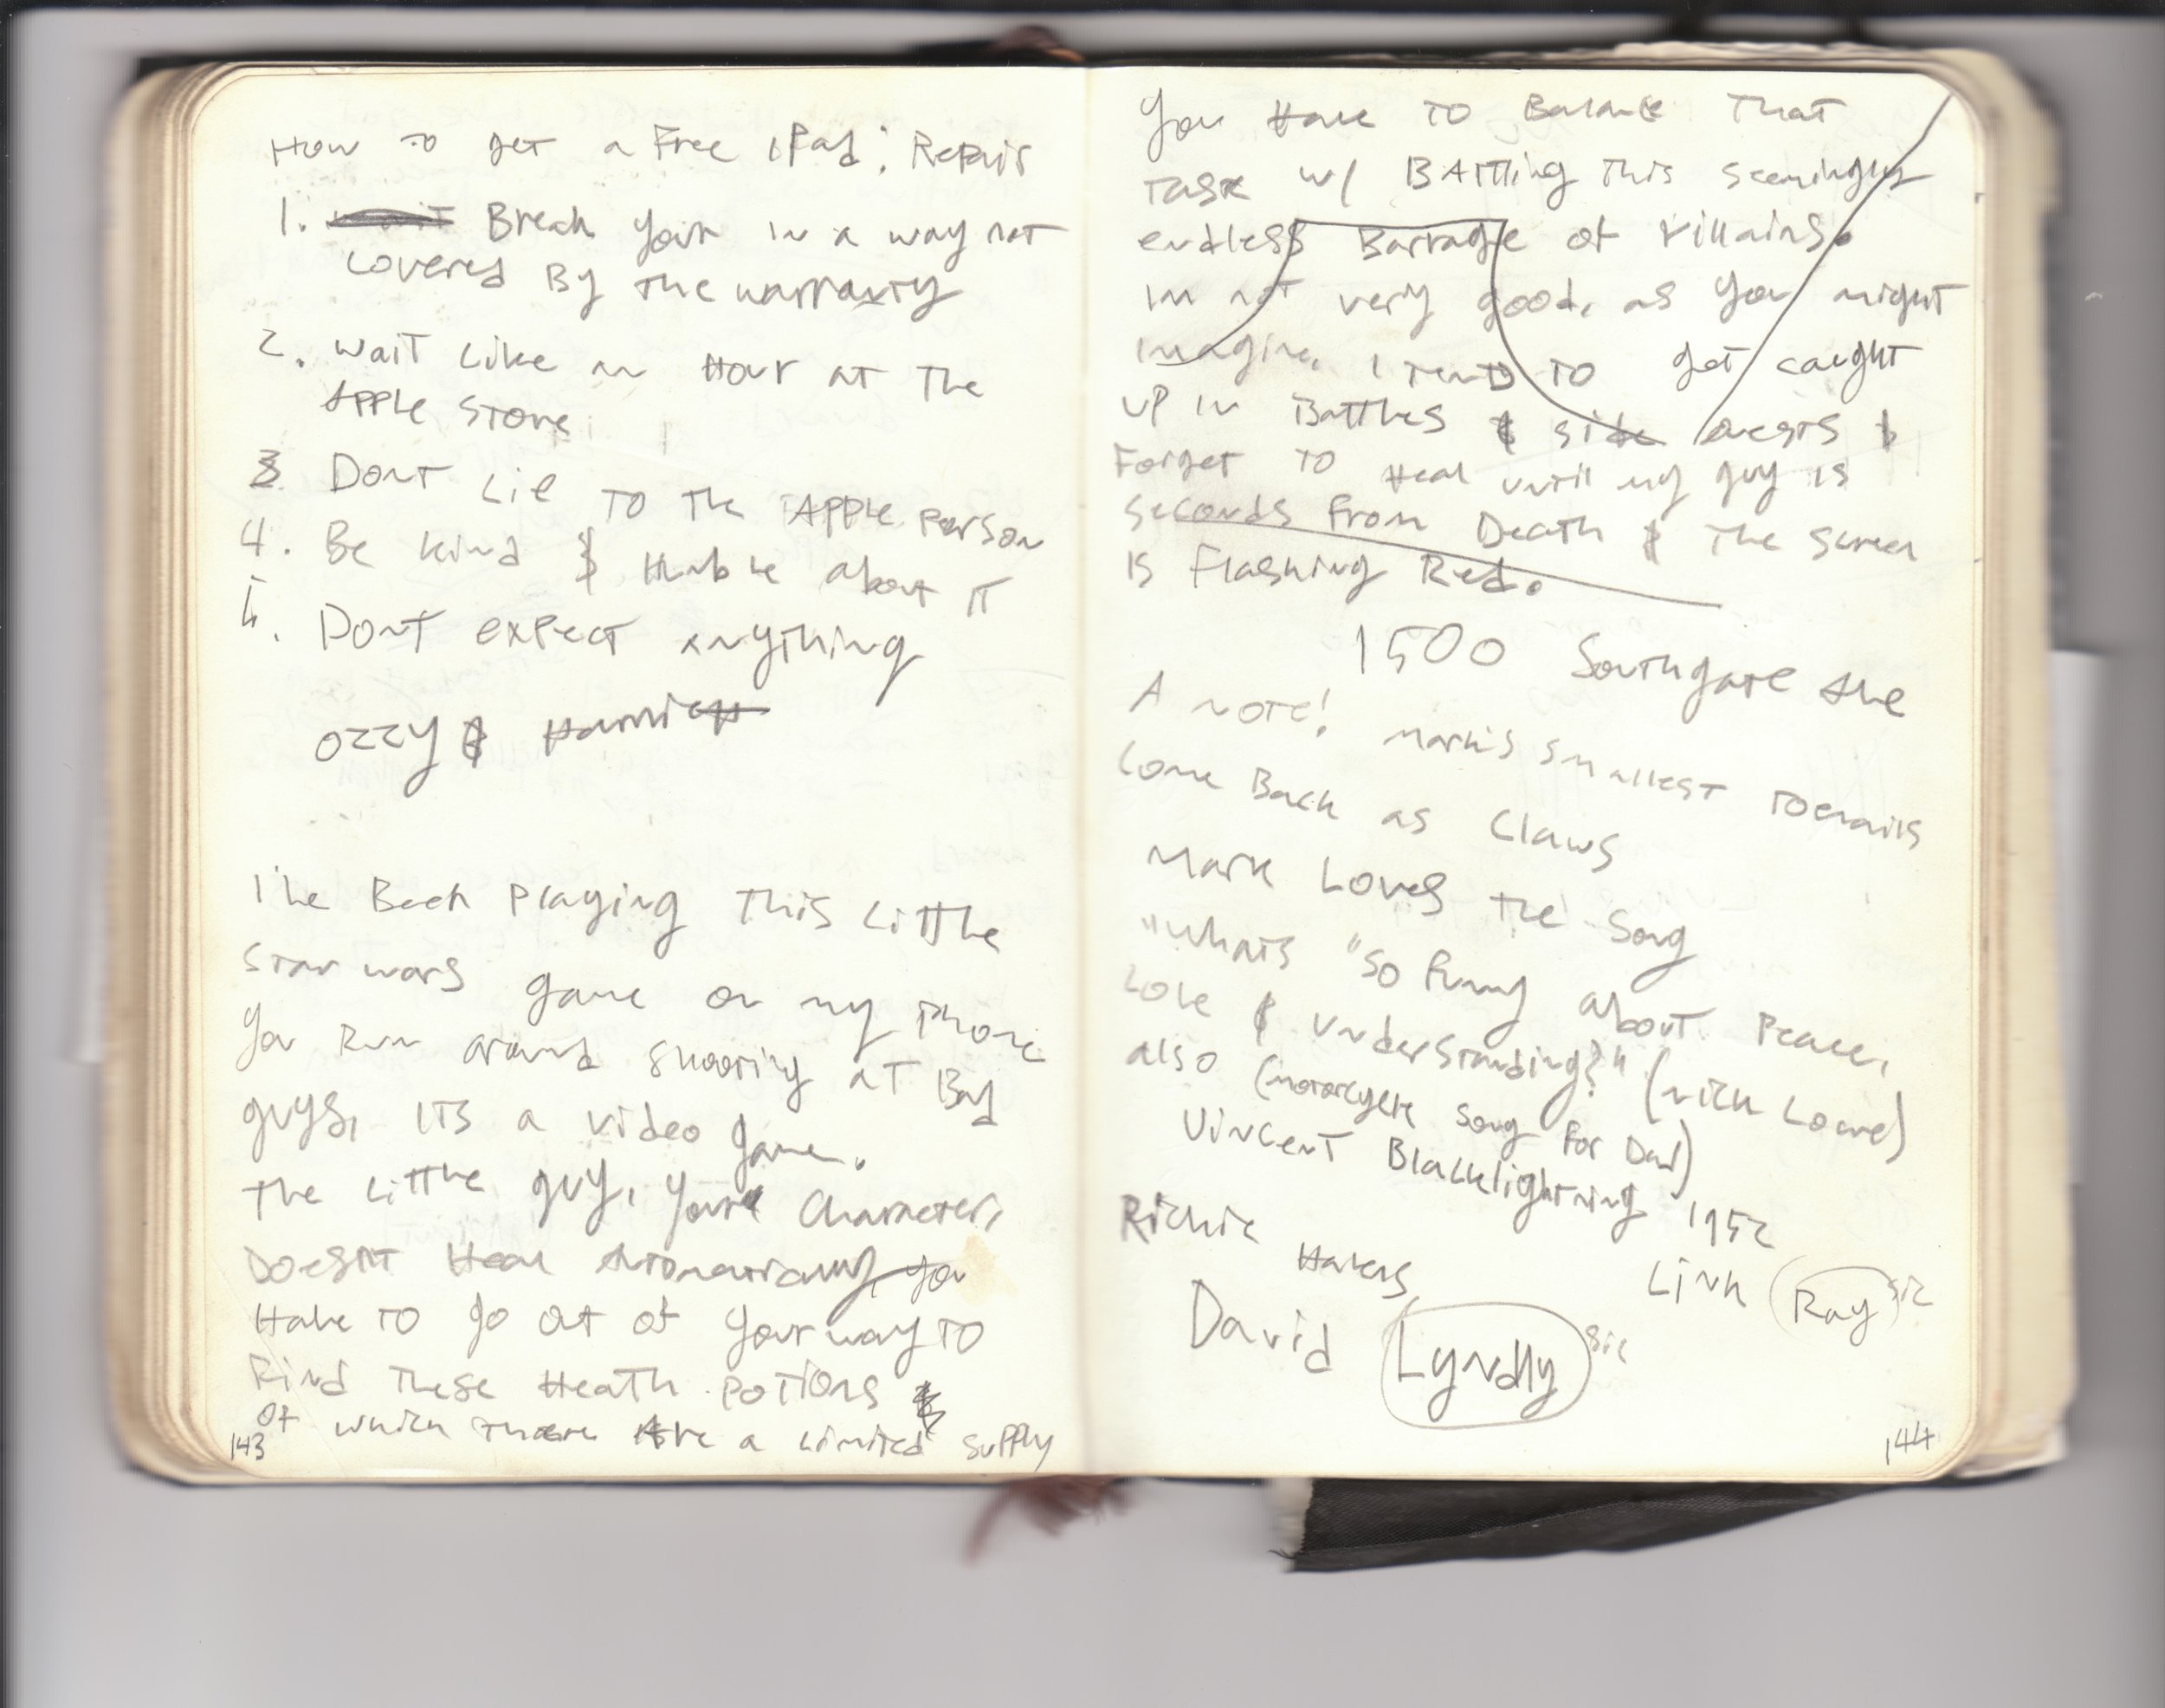 How to get a Free iPad: Repair
1. Break your in a way not
covered By the warranty
2. wait Like an Hour at The
Apple Store
3. Dont Lie To The Apple Person
4. Be kind & Humble about iT
5. Dont expect anything
Ozzy & Harriett
I've Been Playing This Little
Star wars game on my Phone
You Run around shooting at Bad
guys, iTs a video game.
The Little guy, your Character,
Doesnt Heal Automatically, you
Have To go out of your way To
Find These Heath Potions &
of which There Are a Limited supply
143
You Have To Balance That
Task w/ BATTling This seemingly
endless Barrage of villains.
Im not very good, as you might
imagine. I Tend To get caught
up in Battles & side quests &
Forget To Heal until my guy is
seconds From Death & The screen
is Flashing Red.
1500 Southgate Ave
A note! Mark's Smallest Toenails
Come Back as Claws
Mark Loves The Song
"Whats "so Funny about Peace,
Love & Understanding?" (Nick Lowe)
also (motorcycle song for Dad)
Vincent Blacklightning 1952
Richie Havens,
Link Ray sic
David Lyndly sic
144